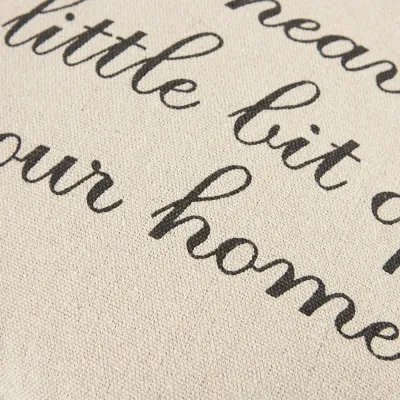 near
little bit
our home